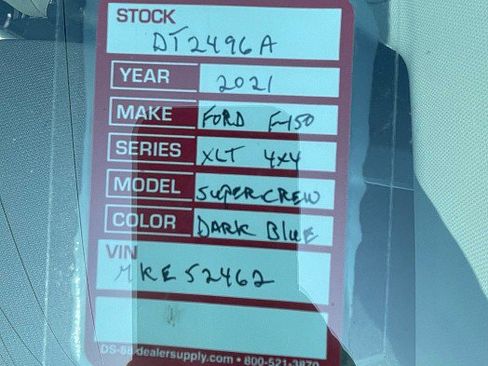 STOCK
DT2496A
YEAR 2021
MAKE FORD F-150
SERIES XLT 4x4
MODEL SUPERCREW
COLOR DARK BLUE
VIN
MKE52462
DS-88-dealersupply.com • 800-521-3870